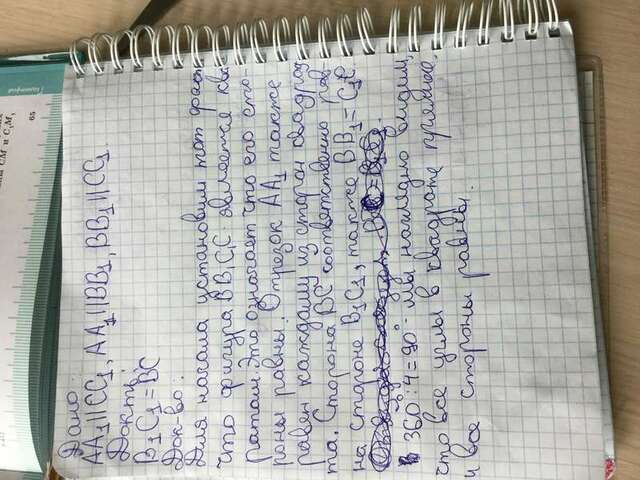 ны CM и C₁M,
65
Дано:
AA₁||CC₁, AA₁||BB₁, BB₁||CC₁.
Док-ть:
B₁C₁=BC
Док-во:
Для начала установим тот факт
что фигура BB₁C₁C является квад
ратом. Это означает что его сто-
роны равны. Отрезок AA₁ также
равен каждому из сторон квадра
та. Сторона BC соответственно рав-
на стороне B₁C₁, также BB₁=C₁C
360°:4=90° - мы наглядно видим,
что все углы в квадрате прямые
и все стороны равны.